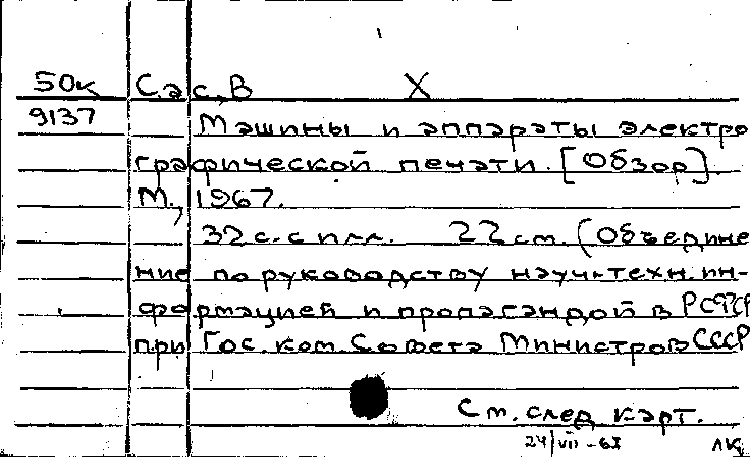 50к С.а с, В X
9137 Машины и аппараты электро
графической печати. [Обзор].
М., 1967.
32 с. с илл. 22 см. (Объедине
ние по руководству науч-техн. ин-
формацией и пропагандой в РСФСР
при Гос. ком. Совета Министров СССР
См. след карт.
24/VII-67 ЛК